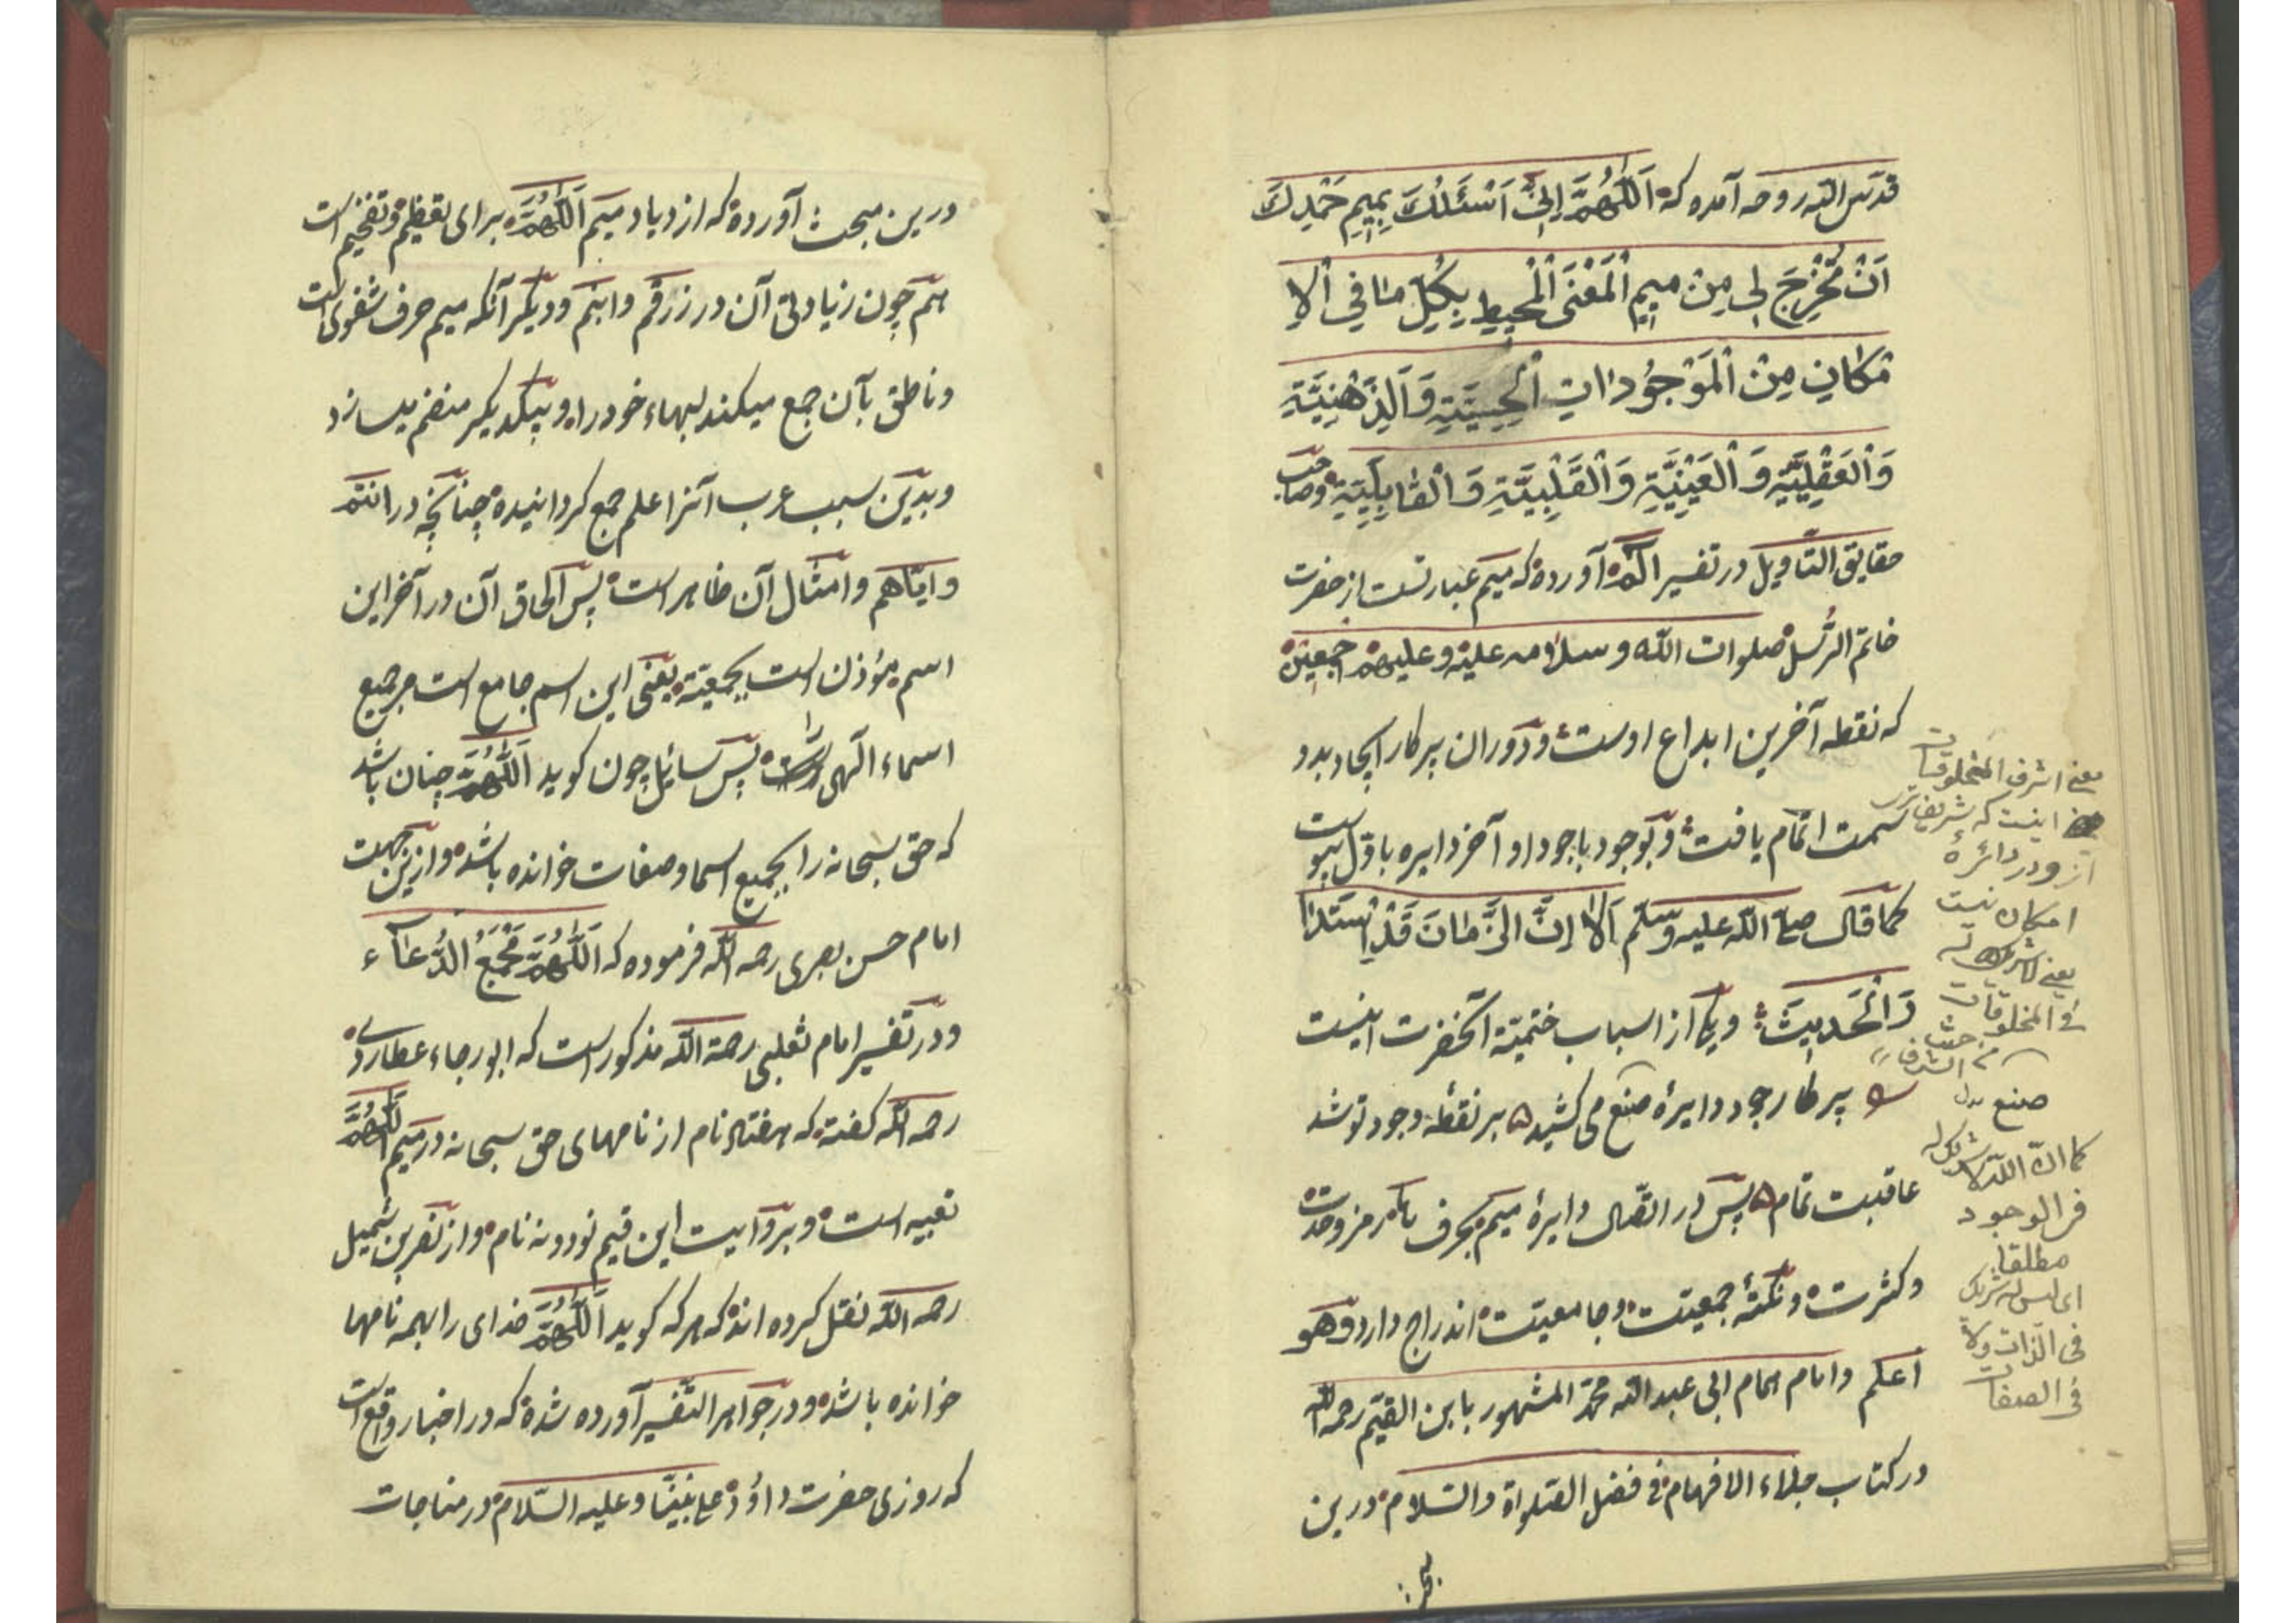 قدس الله روحه آمده که اَللّٰهُمَّ اِنِّی اَسْئَلُكَ بِمِیمِ حَمْدِكَ
اَنْ تُخْرِجَ لِی مِنْ مِیمِ الْمَعْنَی الْمُحِیطِ بِكُلِّ مَا فِی الْاِ
مْكَانِ مِنَ الْمَوْجُودَاتِ الْحِسِّیَّةِ وَالذِّهْنِیَّةِ
وَالْعَقْلِیَّةِ وَالْعَیْنِیَّةِ وَالْقَلْبِیَّةِ وَالْقَابِلِیَّةِ وصاحب
حقایق التّاویل در تفسیر الٓمٓ آورده که میم عبارتست از حضرت
خاتم الرّسل صلوات الله و سلامه علیه و علیهم اجمعین
که نقطه آخرین ابداع اوست و دوران پرکار ایجاد بدو
سمت اتمام یافت و بوجود باجود او آخر دایره باوّل پیوست
کما قال صلی الله علیه وسلّم اَلَا اِنَّ الزَّمَانَ قَدِ اسْتَدَا
رَ الْحَدِیثَ و یکی از اسباب ختمیّة آنحضرت اینست
پرکار چو در دایرهٔ صنع می کشید بر نقطهٔ وجود تو شد
عاقبت تمام پس در اتّصال دایرهٔ میم بحرف ها رمز وحدت
و کثرت و نکتهٔ جمعیت و جامعیت اندراج دارد وهو
اعلم و امام همام ابی عبد الله محمّد المشهور بابن القیّم رحمه الله
در کتاب جلاء الافهام فی فضل الصّلواة والسّلام درین
معنی اشرف المخلوقات
اینست که شریفتر
از و در دائرهٔ
امکان نیست
یعنی لا شریك له
فی المخلوقات
من حیث الشرف
صنع
کما انّ اللّه لا شریك له
فی الوجود
مطلقا
ای لیس له شریك
فی الذات ولا
فی الصفات
درین مبحث آورده که ازدیاد میم اَللّٰهُمَّ برای تعظیم و تفخیم است
هم چون زیادتی آن در زرقم و ابنم و دیگر آنکه میم حرف شفوی است
و ناطق بآن جمع میکند لبهاء خود را و بیکدیکر منضم میسازد
و بدین سبب عرب آنرا علم جمع کردانیده چنانچه در انتم
و ایّاهم و امثال آن ظاهر است پس الحاق آن در آخر این
اسم مؤذن است بجمعیّة یعنی این اسم جامع است مر جمیع
اسماء الهی راست پس سائل چون کوید اَللّٰهُمَّ چنان باشد
که حق سبحانه را بجمیع اسما و صفات خوانده باشد و ازین جهت
امام حسن بصری رحمه الله فرموده که اَللّٰهُمَّ مَجْمَعُ الدُّعَاۤء
و در تفسیر امام ثعلبی رحمة الله مذکور است که ابو رجاء عطاردی
رحمه الله کفته که هفتاد نام از نامهای حق سبحانه در میم اللّٰهُمَّ
تعبیه است و بروایت این قیم نود و نه نام و از نضر بن شمیل
رحمه الله نقل کرده اند که هر که کوید اَللّٰهُمَّ خدای را بهمه نامها
خوانده باشد و در جواهر التفسیر آورده شده که در اخبار واقع است
که روزی حضرت داؤد علی نبیّنا و علیه السّلام در مناجات